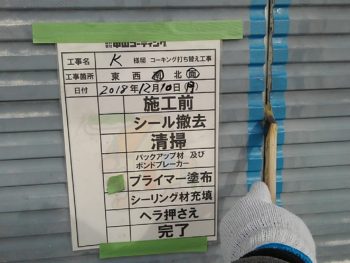 中山コーティング
工事名 K 様邸 コーキング打ち替え工事
工事箇所 東 西 南 北 面
日付 2018年12月10日(月)
施工前
シール撤去
清掃
バックアップ材 及び
ボンドブレーカー
プライマー塗布
シーリング材充填
ヘラ押さえ
完了